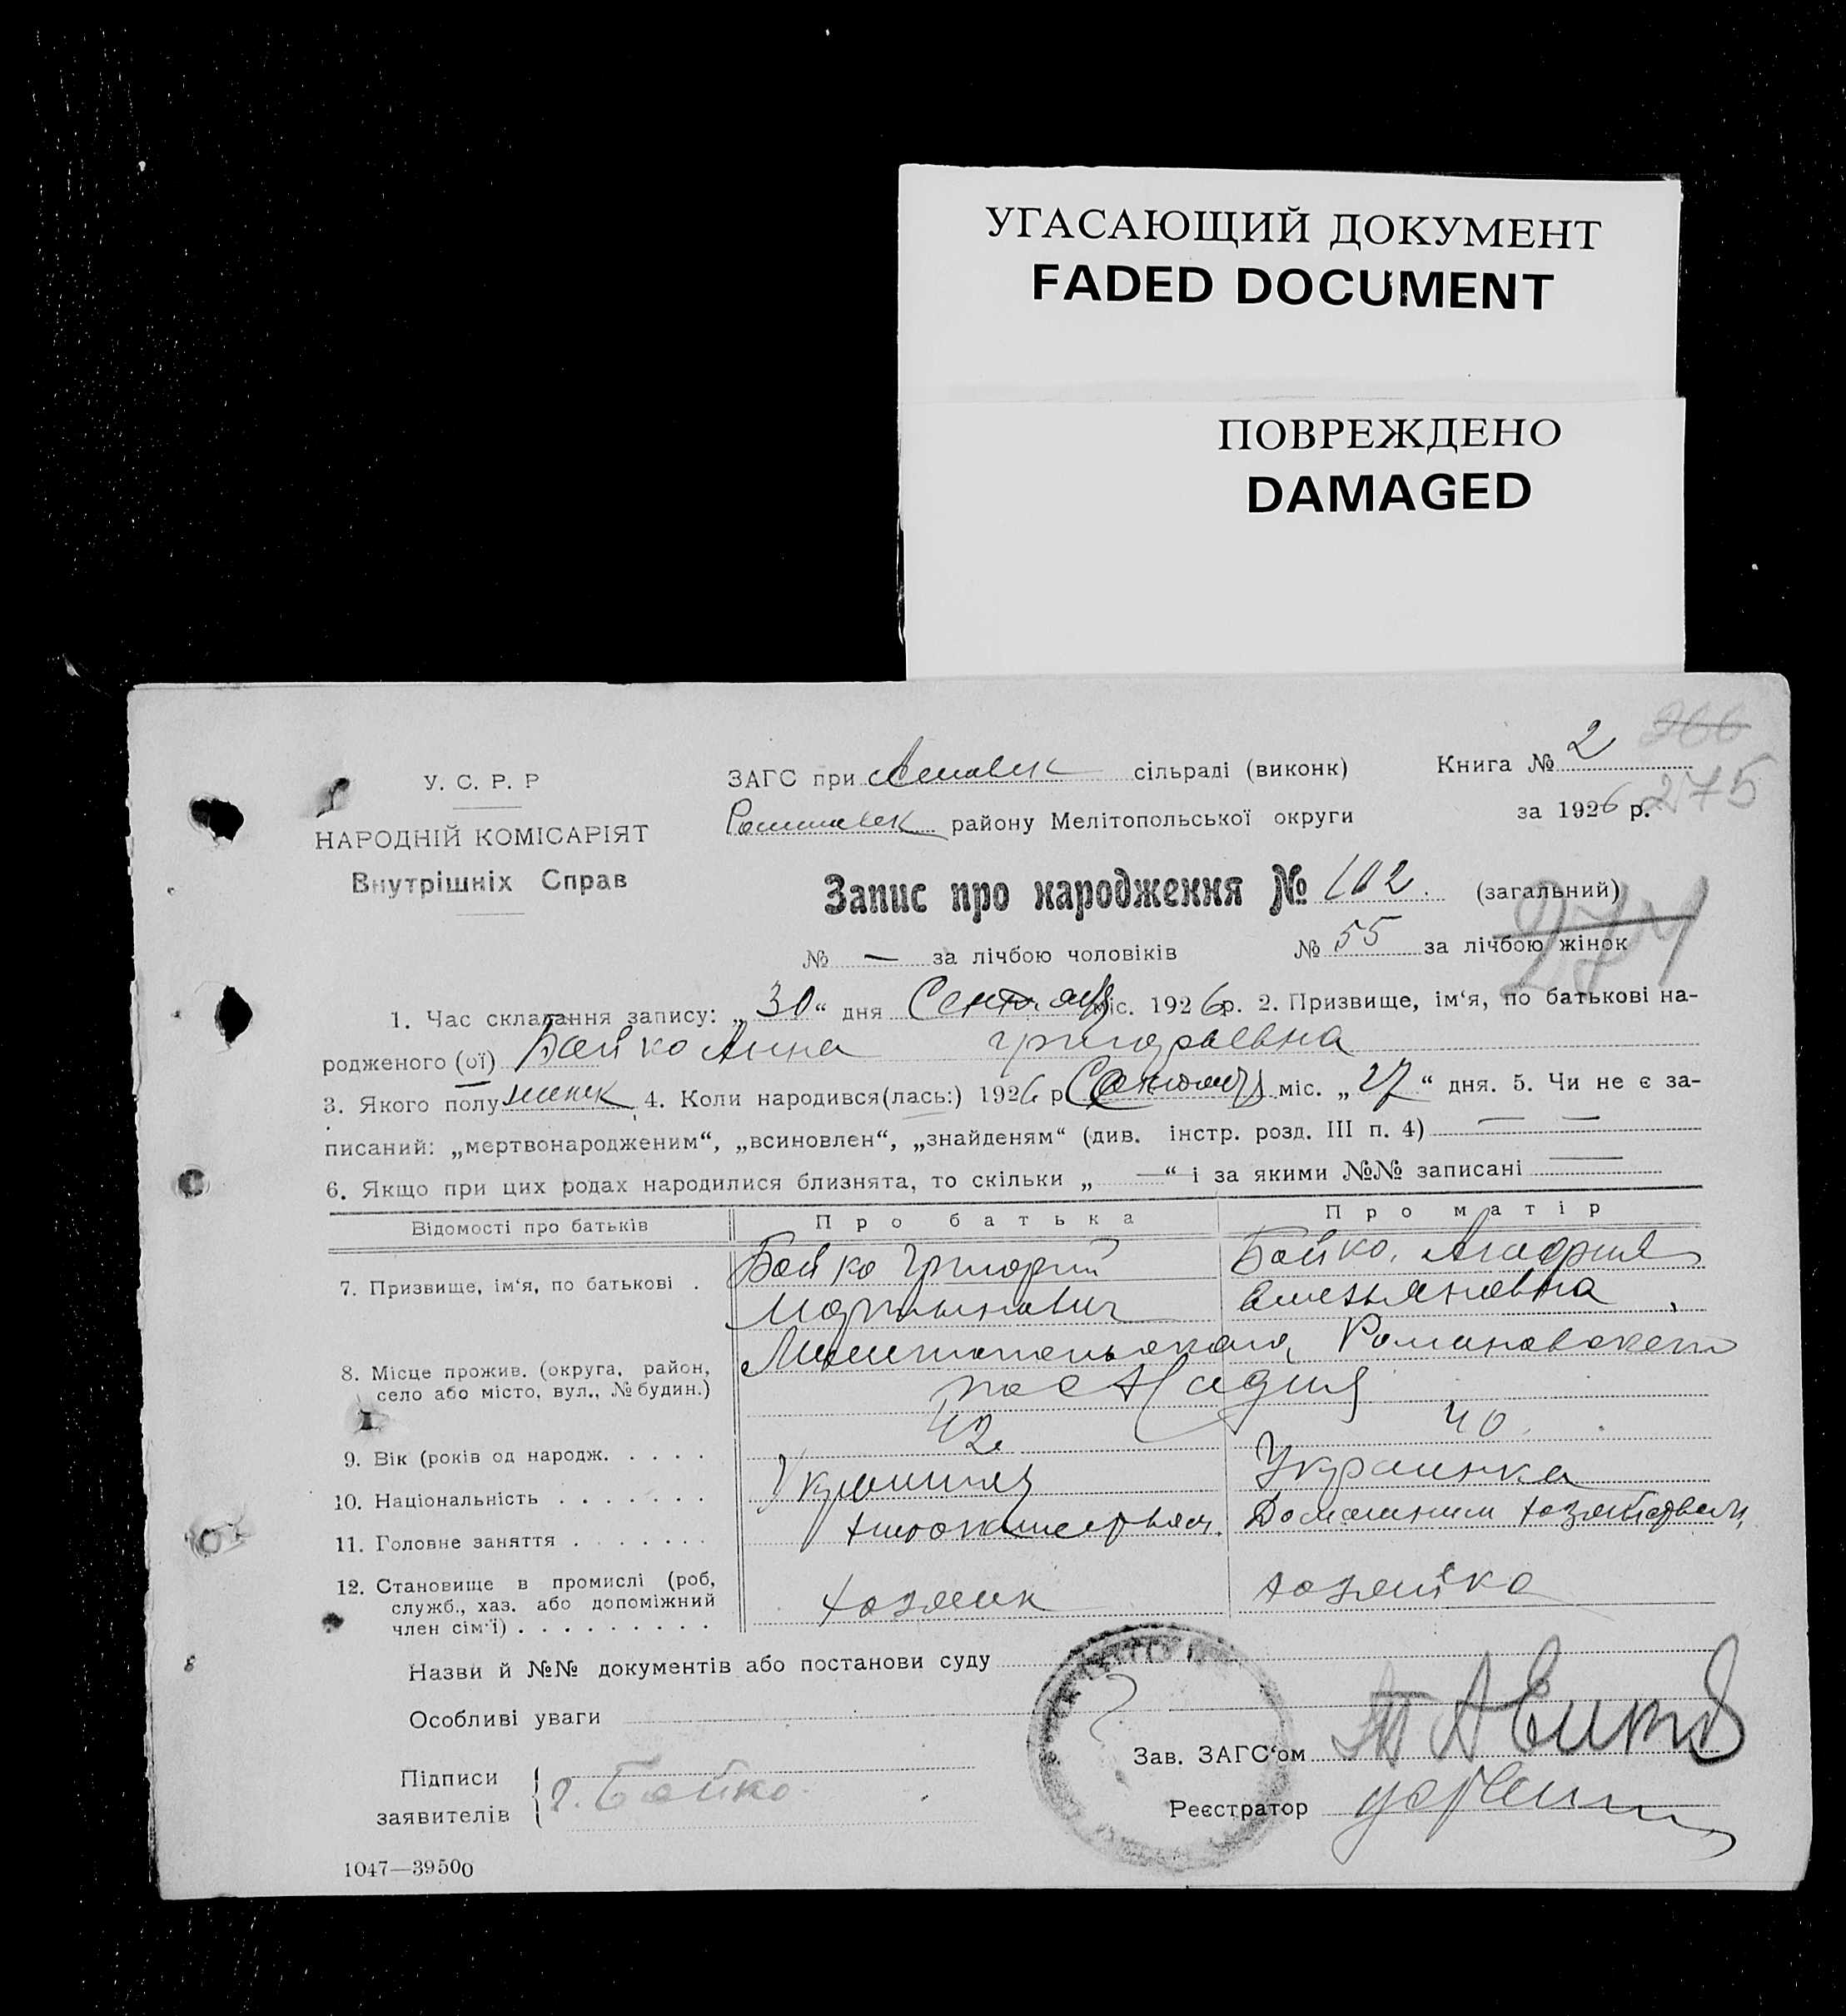 УГАСАЮЩИЙ ДОКУМЕНТ
FADED DOCUMENT
ПОВРЕЖДЕНО
DAMAGED
У. С. Р. Р
НАРОДНІЙ КОМІСАРІЯТ
Внутрішніх Справ
ЗАГС при сільраді (виконк)
району Мелітопольської округи
Книга № 2
266
за 1926 р. 275
Запис про народження № 102. (загальний)
274
№ — за лічбою чоловіків № 55 за лічбою жінок
1. Час складання запису: „30“ дня Сентября міс. 1926 р. 2. Призвище, ім‘я, по батькові на-
родженого (ої) Бойко Анна Григорьевна
3. Якого полу женск 4. Коли народився(лась:) 1926 р. Сентября міс. „27“ дня. 5. Чи не є за-
писаний: „мертвонародженим“, „всиновлен“, „знайденям“ (див. інстр. розд. III п. 4) — —
6. Якщо при цих родах народилися близнята, то скільки „ —“ і за якими №№ записані —
Відомості про батьків Про батька Про матір
7. Призвище, ім‘я, по батькові . Бойко Григорий Бойко
8. Місце прожив. (округа, район, Романовского
село або місто, вул., № будин.)
9. Вік (років од народж. . . . . 42 40
10. Національність . . . . . . . Украинец Украинка
11. Головне заняття . . . . . . . Домашним
12. Становище в промислі (роб,
служб., хаз. або допоміжний хозяин хозяйка
член сім‘ї) . . . . . . . . .
Назви й №№ документів або постанови суду
Особливі уваги
Зав. ЗАГС‘ом
Підписи
заявителів { Г. Бойко
Реєстратор
1047—39500